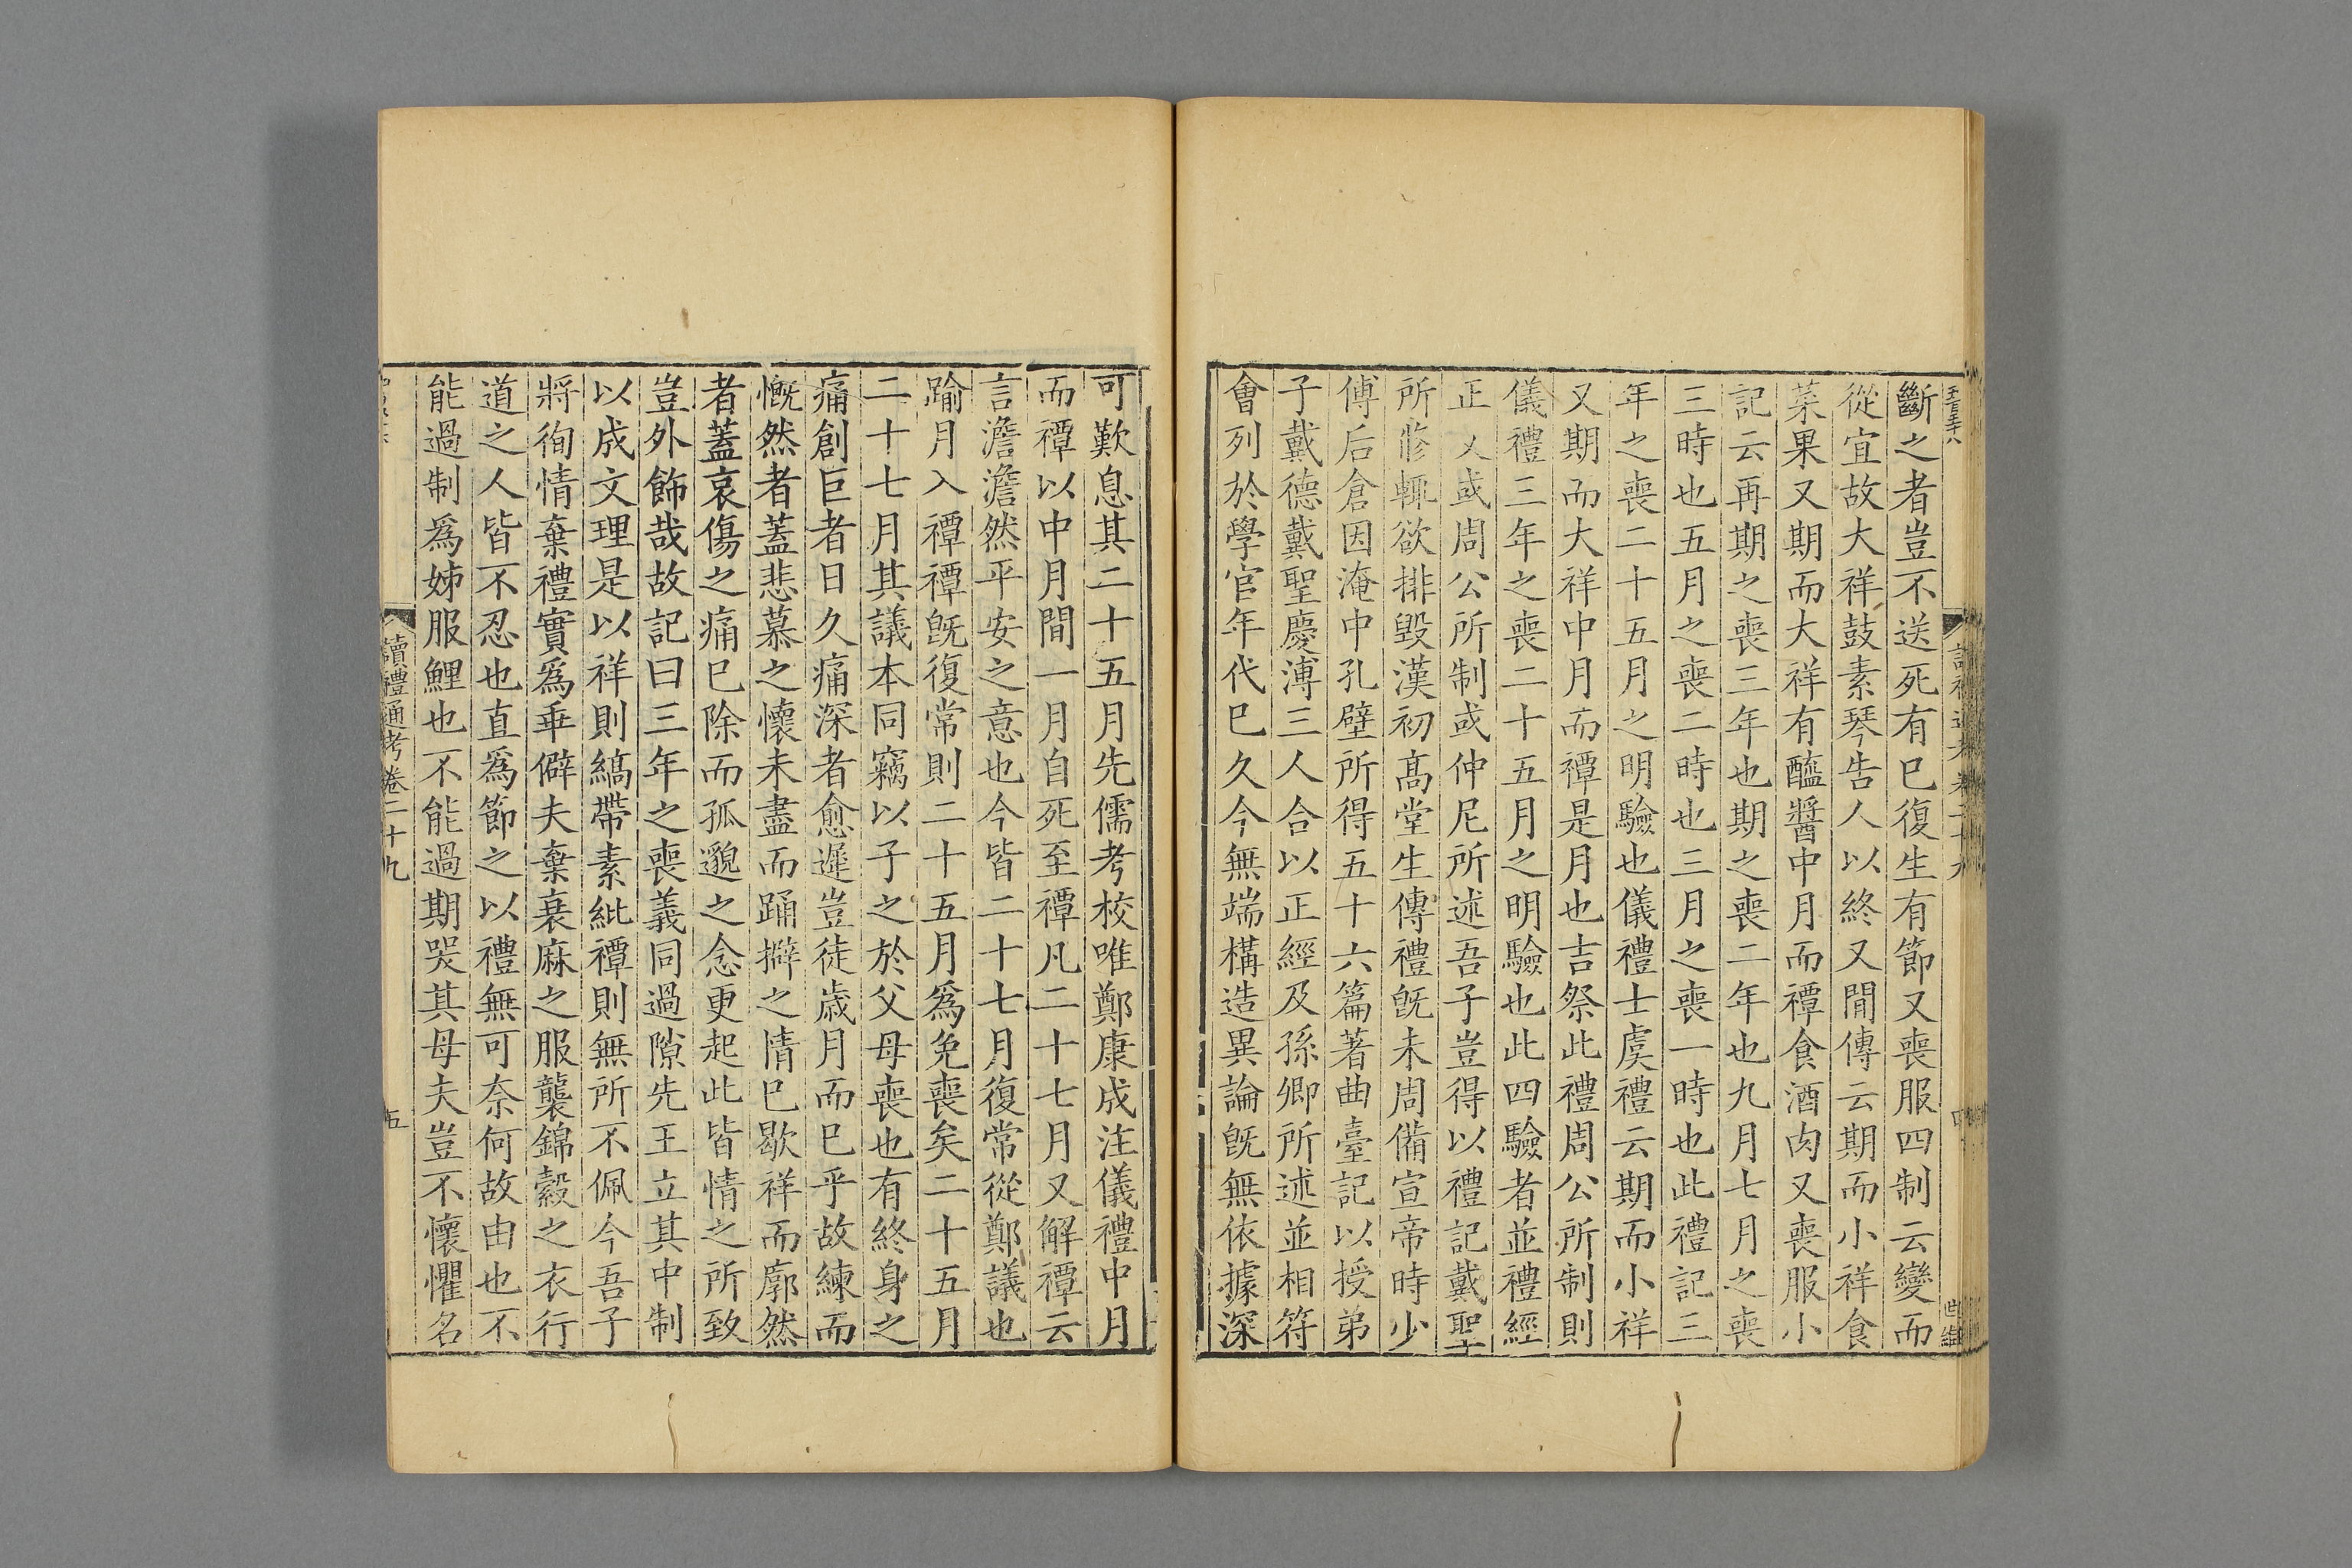 斷之者豈不送死有巳復生有節又喪服四制云變而
從宜故大祥鼓素琴告人以終又閒傳云期而小祥食
菜果又期而大祥有醯醬中月而禫食酒肉又喪服小
記云再期之喪三年也期之喪二年也九月七月之喪
三時也五月之喪二時也三月之喪一時也此禮記三
年之喪二十五月之明驗也儀禮士虞禮云期而小祥
又期而大祥中月而禫是月也吉祭此禮周公所制則
儀禮三年之喪二十五月之明驗也此四驗者並禮經
正文或周公所制或仲尼所述吾子豈得以禮記戴聖
所修輒欲排毀漢初高堂生傳禮旣未周備宣帝時少
傅后倉因淹中孔壁所得五十六篇著曲臺記以授弟
子戴德戴聖慶溥三人合以正經及孫卿所述並相符
會列於學官年代巳久今無端構造異論旣無依據深
四
可歎息其二十五月先儒考校唯鄭康成注儀禮中月
而禫以中月間一月自死至禫凡二十七月又解禫云
言澹澹然平安之意也今皆二十七月復常從鄭議也
踰月入禫禫旣復常則二十五月爲免喪矣二十五月
二十七月其議本同竊以子之於父母喪也有終身之
痛創巨者日久痛深者愈遲豈徒歲月而巳乎故練而
慨然者蓋悲慕之懷未盡而踊擗之情巳歇祥而廓然
者蓋哀傷之痛巳除而孤邈之念更起此皆情之所致
豈外飾哉故記曰三年之喪義同過隙先王立其中制
以成文理是以祥則縞帶素紕禫則無所不佩今吾子
將徇情棄禮實爲乖僻夫棄衰麻之服襲錦縠之衣行
道之人皆不忍也直爲節之以禮無可奈何故由也不
能過制爲姊服鯉也不能過期哭其母夫豈不懷懼名
讀禮通考卷二十九
五